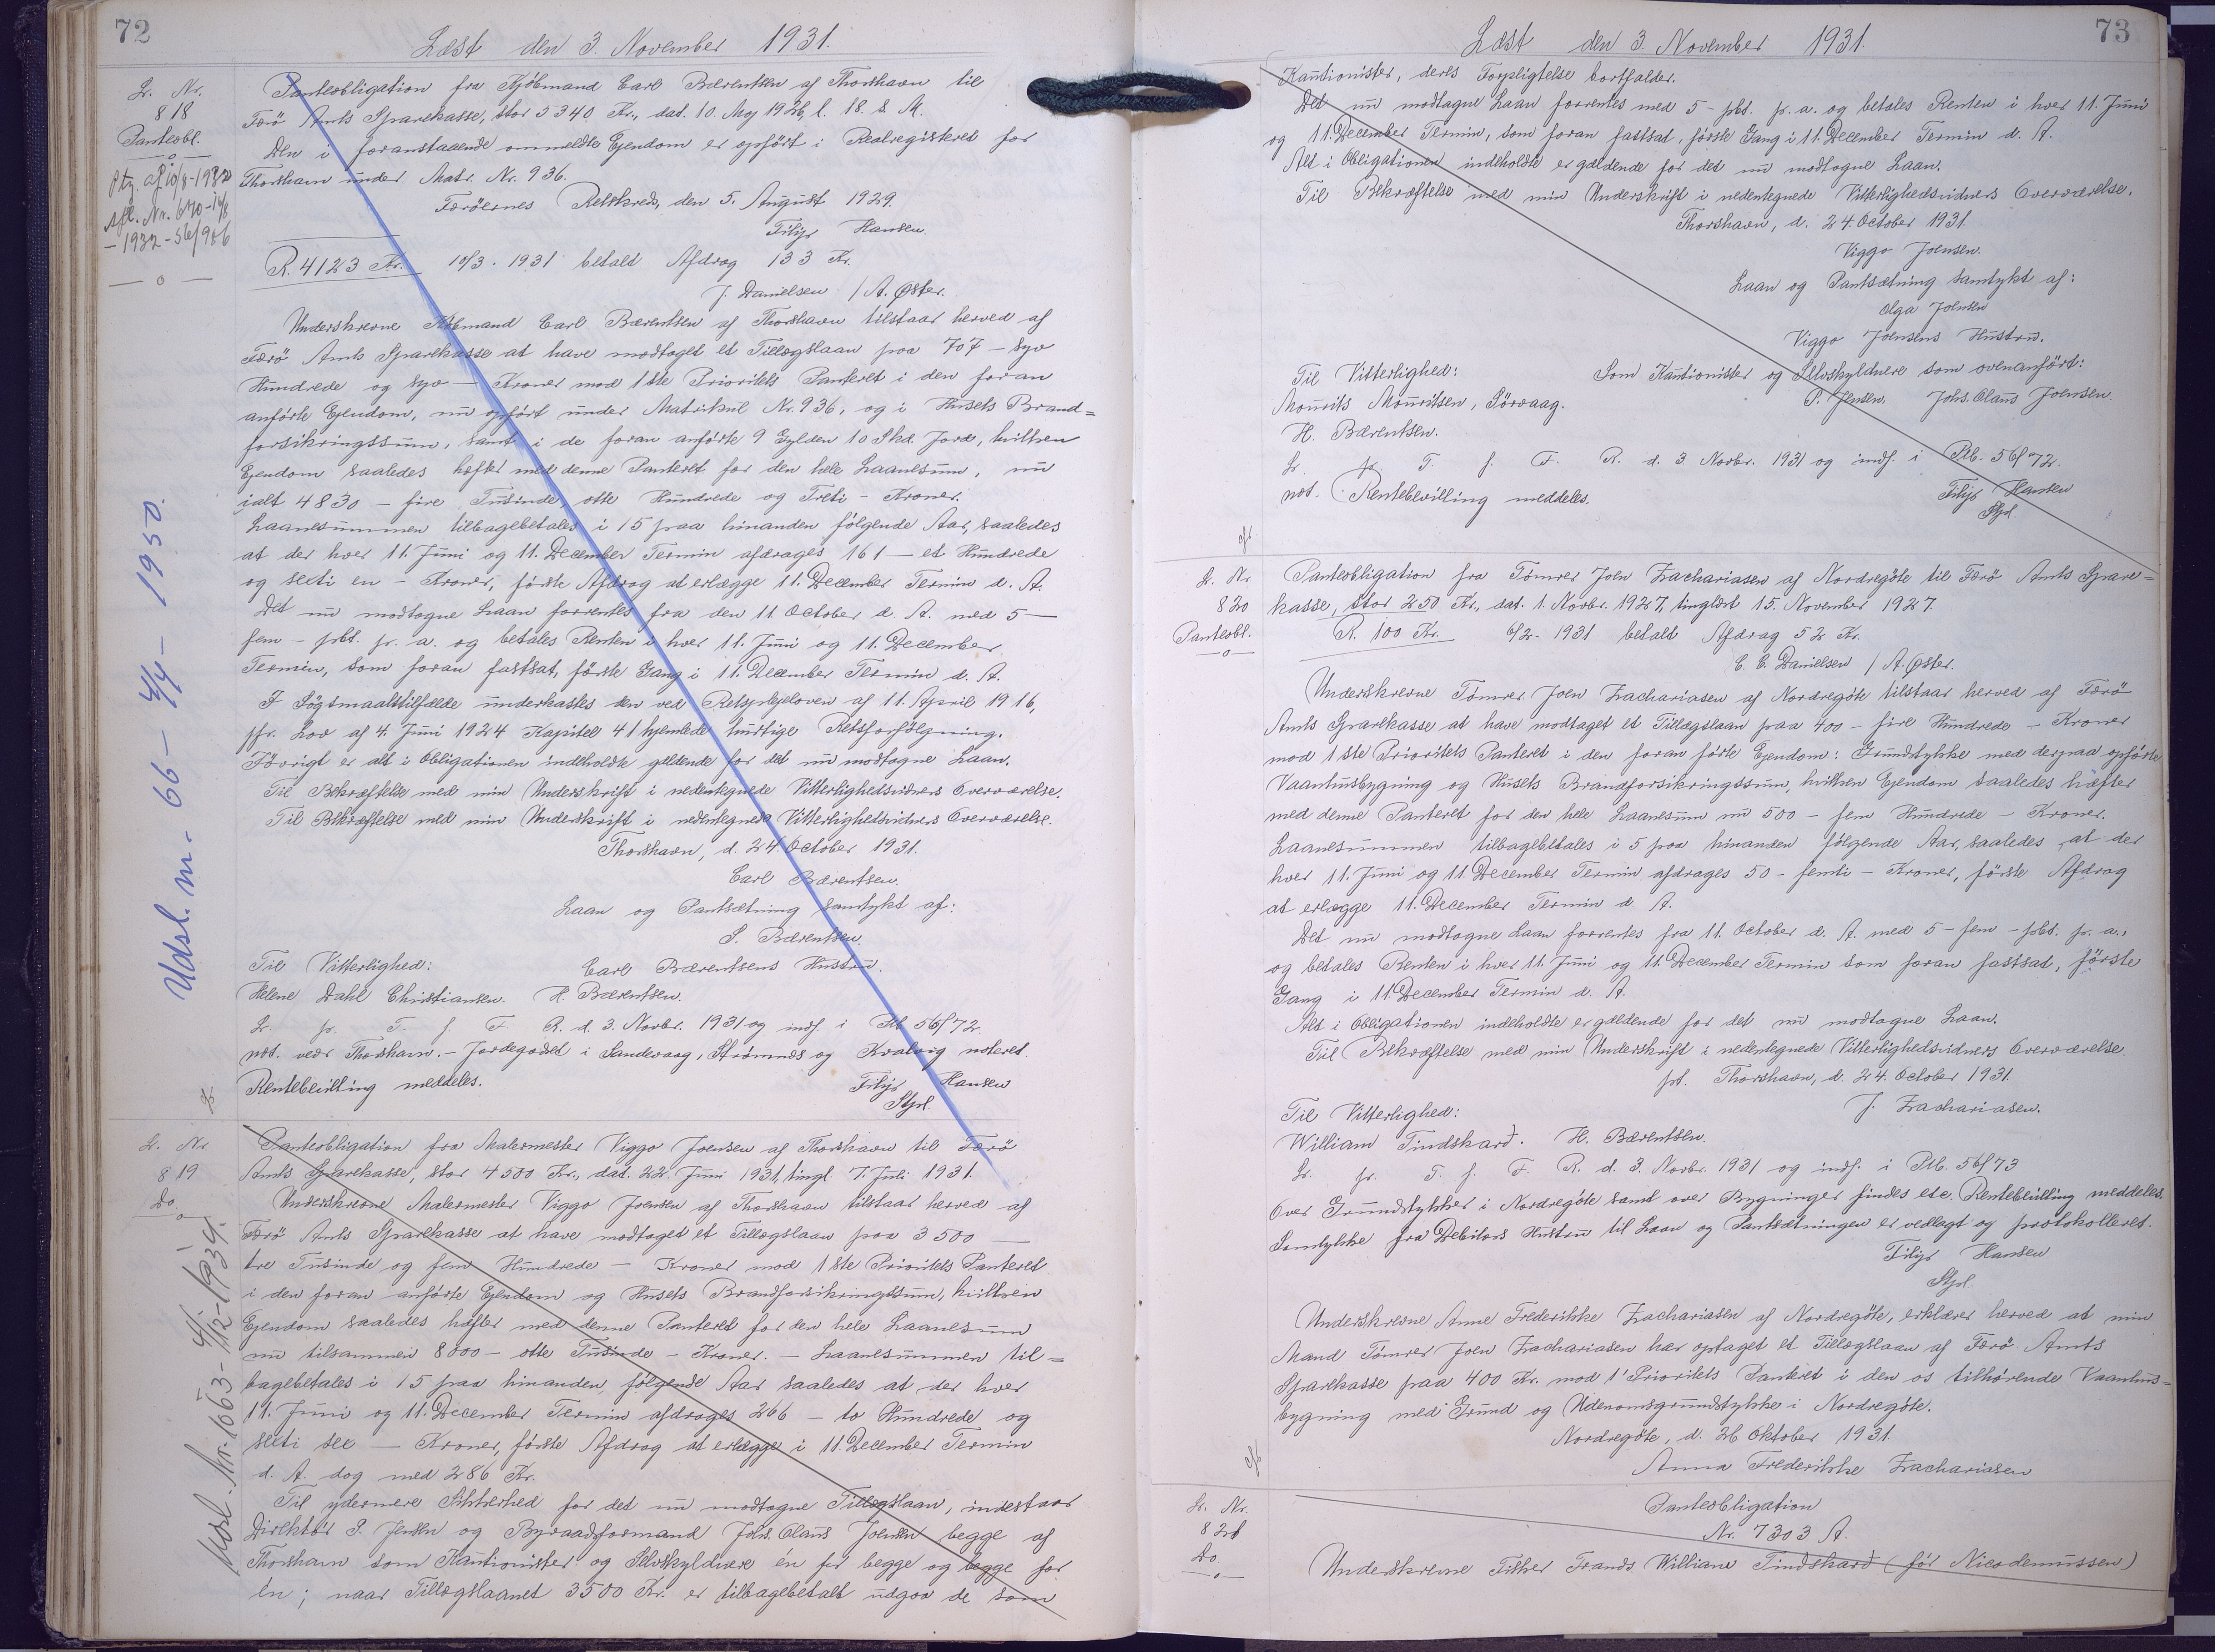 72
Læst den 3. November 1931.
Lr. Nr.
818
Panteobl.
Panteobligation fra Kjöbmand Carl Bærentsen af Thorshavn til
Færö Amts Sparekasse, stor 5340 Kr., dat. 10. Maj 1926, l. 18. s. M.
Den i foranstaaende ommeldte Ejendom er opfört i Realregistret for
Thorshavn under Matr. Nr. 936.
Færöernes Retskreds, den 5. August 1929.
Filip Hansen.
R. 4123 Kr. 10/3. 1931 betalt Afdrag 133 Kr.
J. Danielsen / A. Øster.
Underskrevne Köbmand Carl Bærentsen af Thorshavn tilstaar herved af
Færö Amts Sparekasse at have modtaget et Tillægslaan paa 707 – syv
Hundrede og syv – Kroner mod 1ste Prioritets Panteret i den foran
anförte Ejendom, nu opfört under Matrikul Nr. 936, og i Husets Brand=
forsikringssum, samt i de foran anförte 9 Gylden 10 Skd. Jord, hvilken
Ejendom saaledes hæfter med denne Panteret for den hele Laanesum, nu
ialt 4830 – fire Tusinde, otte Hundrede og Treti – Kroner.
Laanesummen tilbagebetales i 15 paa hinanden fölgende Aar, saaledes
at der hver 11. Juni og 11. December Termin afdrages 161 – et Hundrede
og sexti en – Kroner, förste Afdrag at erlægge 11. December Termin d. A.
Det nu modtagne Laan forrentes fra den 11. October d. A. med 5 –
fem – pCt. pr. a. og betales Renten i hver 11. Juni og 11. December
Termin, som foran fastsat, förste Gang i 11. December Termin d. A.
I Sögsmaalstilfælde underkastes den ved Retsplejeloven af 11. April 1916,
jfr. Lov af 4. Juni 1924 Kapitel 41 hjemlede hurtige Retsforfölgning.
Iövrigt er alt i Obligationen indeholdte gældende for det nu modtagne Laan.
Til Bekræftelse med min Underskrift i nedentegnede Vitterlighedsvidners Overværelse.
Til Bekræftelse med min Underskrift i nedentegnede Vitterlighedsvidners Overværelse.
Thorshavn, d. 24. October 1931.
Carl Bærentsen.
Laan og Pantsætning samtykt af:
S. Bærentsen.
Carl Bærentsens Hustru.
Til Vitterlighed:
Helene Dahl Christiansen. H. Bærentsen.
Lr. pr. T. f. F. R. d. 3. Novbr. 1931 og indf. i Ptb 56/72.
not. vedr Thorshavn. – Jordegodset i Sandevaag, Strömnæs og Kvalvig noteret.
Rentebevilling meddeles.
Filip Hansen
Lr. Nr.
819
Do.
Panteobligation fra Malermester Viggo Joensen af Thorshavn til Færö
Amts Sparekasse, stor 4500 Kr., dat. 22. Juni 1931, tingl. 7. Juli 1931.
Underskrevne Malermester Viggo Joensen af Thorshavn tilstaar herved af
Færö Amts Sparekasse at have modtaget et Tillægslaan paa 3500 –
tre Tusinde og fem Hundrede – Kroner mod 1ste Prioritets Panteret
i den foran anförte Ejendom og Husets Brandforsikringssum, hvilken
Ejendom saaledes hæfter med denne Panteret for den hele Laanesum
nu tilsammen 8000 – otte Tusinde – Kroner. – Laanesummen til=
bagebetales i 15 paa hinanden fölgende Aar saaledes at der hver
11. Juni og 11. December Termin afdrages 266 – to Hundrede og
sexti sex – Kroner, förste Afdrag at erlægge i 11. December Termin
d. A. dog med 286 Kr.
Til ydermere Sikkerhed for det nu modtagne Tillægslaan, indestaar
Direktör P. Jensen og Byraadsformand Johs. Olaus Joensen begge af
Thorshavn som Kautionister og Selvskyldnere én for begge og begge for
én; naar Tillægslaanet 3500 Kr. er tilbagebetalt udgaa de som
Udsl. m. 66 – 4/4 – 1950.
73
Læst den 3. November 1931.
Kautionister, deres Forpligtelse bortfalder.
Det nu modtagne Laan forrentes med 5 – pCt. pr. a. og betales Renten i hver 11. Juni
og 11. December Termin, som foran fastsat, förste Gang i 11. December Termin d. A.
Alt i Obligationen indeholdte er gældende for det nu modtagne Laan.
Til Bekræftelse med min Underskrift i nedentegnede Vitterlighedsvidners Overværelse.
Thorshavn, d. 24. October 1931.
Viggo Joensen.
Laan og Pantsætning samtykt af:
Olga Joensen
Viggo Joensens Hustru.
Til Vitterlighed: Som Kautionister og Selvskyldnere som ovenanfört:
Mourits Mouritsen, Sörvaag. P. Jensen. Johs. Olaus Joensen.
H. Bærentsen.
Lr. pr. T. f. F. R. d. 3. Novbr. 1931 og indf. i Ptb. 56/72.
not. Rentebevilling meddeles.
Filip Hansen
Lr. Nr.
820
Panteobl.
Panteobligation fra Tömrer Joen Zachariasen af Nordregöte til Færö Amts Spare=
kasse, stor 250 Kr., dat. 1. Novbr. 1927, tinglæst 15. November 1927.
R. 100 Kr. 6/2. 1931 betalt Afdrag 52 Kr.
C. C. Danielsen / A. Øster.
Underskrevne Tömrer Joen Zachariasen af Nordregöte tilstaar herved af Færö
Amts Sparekasse at have modtaget et Tillægslaan paa 400 – fire Hundrede – Kroner
mod 1ste Prioritets Panteret i den foran förte Ejendom: Grundstykke med derpaa opförte
Vaanhusbygning og Husets Brandforsikringssum, hvilken Ejendom saaledes hæfter
med denne Panteret for den hele Laanesum nu 500 – fem Hundrede – Kroner.
Laanesummen tilbagebetales i 5 paa hinanden fölgende Aar, saaledes at der
hver 11. Juni og 11. December Termin afdrages 50 – femti – Kroner, förste Afdrag
at erlægge 11. December Termin d. A.
Det nu modtagne Laan forrentes fra 11. October d. A. med 5 – fem – pCt. pr. a.,
og betales Renten i hver 11. Juni og 11. December Termin som foran fastsat, förste
Gang i 11. December Termin d. A.
Alt i Obligationen indeholdte er gældende for det nu modtagne Laan.
Til Bekræftelse med min Underskrift i nedentegnede Vitterlighedsvidners Overværelse.
pt. Thorshavn, d. 24. October 1931.
J. Zachariasen.
Til Vitterlighed:
William Tindskard. H. Bærentsen.
Lr. pr. T. f. F. R. d. 3. Novbr. 1931 og indf. i Ptb. 56/73
Over Grundstykker i Nordregöte samt over Bygninger findes etc. Rentebevilling meddeles.
Samtykke fra Debitors Hustru til Laan og Pantsætningen er vedlagt og protokolleret.
Filip Hansen
Underskrevne Anne Frederikke Zachariasen af Nordregöte, erklærer herved at min
Mand Tömrer Joen Zachariasen har optaget et Tillægslaan af Færö Amts
Sparekasse paa 400 Kr. mod 1' Prioritets Panteret i den os tilhörende Vaanhus=
bygning med Grund og Udenomsgrundstykke i Nordregöte.
Nordregöte, d. 26. Oktober 1931.
Anna Frederikke Zachariasen
Lr. Nr.
821
Do.
Panteobligation
Nr. 7303 A.
Underskrevne Fisker Frands William Tindskard (för Nicodemussen)